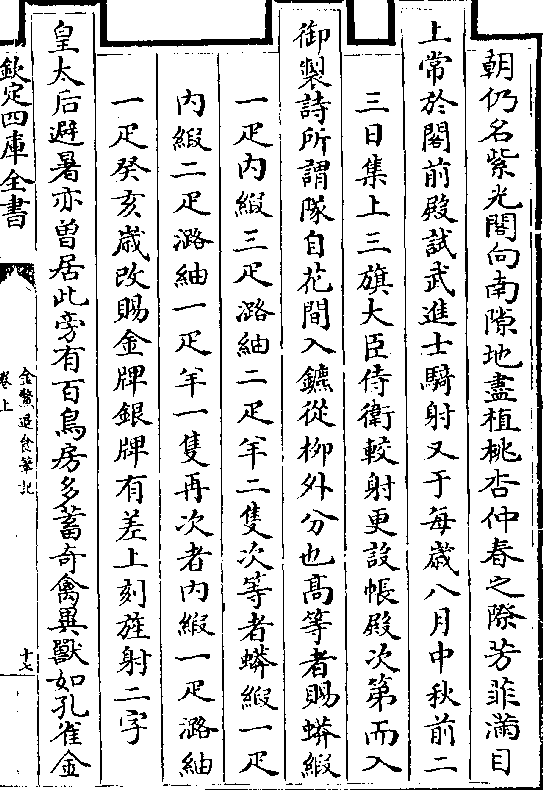 朝仍名紫光閣向南隙地盡植桃杏仲春之際芳菲滿目
上常於閣前殿試武進士騎射又于每歲八月中秋前二
三日集上三旗大臣侍衛較射更設帳殿次第而入
御製詩所謂隊自花間入鑣從栁外分也高等者賜蟒緞
一疋内緞三疋潞紬二疋羊二隻次等者蟒緞一疋
内緞二疋潞紬一疋羊一隻再次者内緞一疋潞紬
一疋癸亥歲改賜金牌銀牌有差上刻旌射二字
皇太后避暑亦曽居此旁有百鳥房多蓄奇禽異獸如孔雀金
欽定四庫全書
金鰲退食筆記
卷上
十六